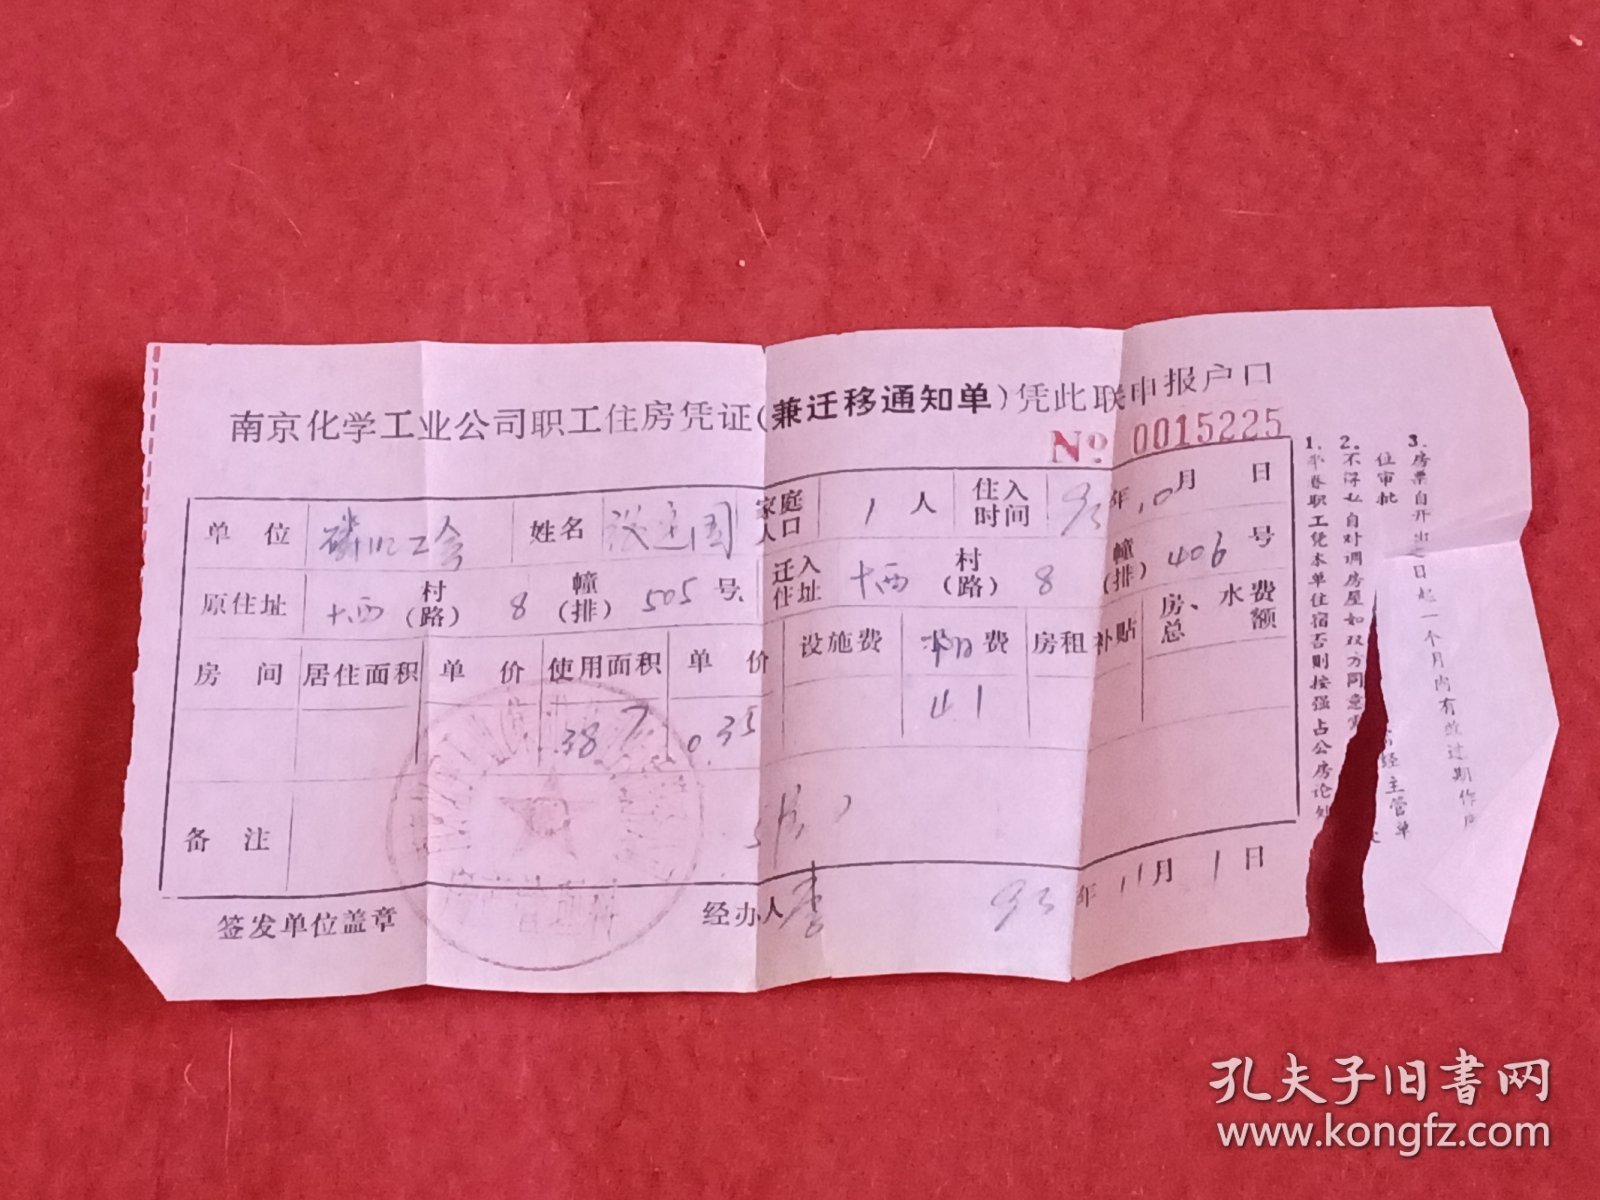 南京化学工业公司职工住房凭证(兼迁移通知单)凭此联申报户口
№ 0015225
单位 磷肥工会 姓名 家庭人口 1 人 住入时间 93年10月 日
原住址 十西 村(路) 8 幢(排) 505 号 迁入住址 十西 村(路) 8 幢(排) 406 号
房间 居住面积 单价 使用面积 单价 设施费 费 房租补贴 房、水费总额
38.7 0.35 41
备注
签发单位盖章 经办人 李 93年11月1日
房产管理科
1.职工凭本单住宿否则按强占公房论处
2.不得私自对调房屋如双方同意 经主管单位审批
3.房票自开出之日起一个月内有效过期作废
孔夫子旧书网
www.kongfz.com